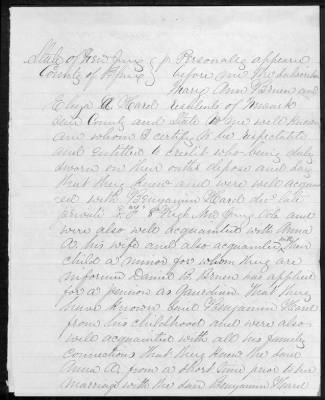 State of New York } Personally appeared
County of { before me the subscriber
Mary Ann Brown and
Eliza A Hard residents of
said County and State to me well known
and whom I certify to be respectable
and entitled to credit who being duly
sworn on their oaths depose and say
that they know and were well acquain
ted with Benjamin Hard decd late
private Regt New York Vols and
were also well acquainted with Anna
A. his wife and also acquainted with their
child a minor for whom they are
informed Daniel has applied
for a pension as Guardian. That they
have known said Benjamin Hard
from his childhood and were also
well acquainted with all his family
connections that they knew the said
Anna A. from a short time prior to her
marriage with the said Benjamin Hard